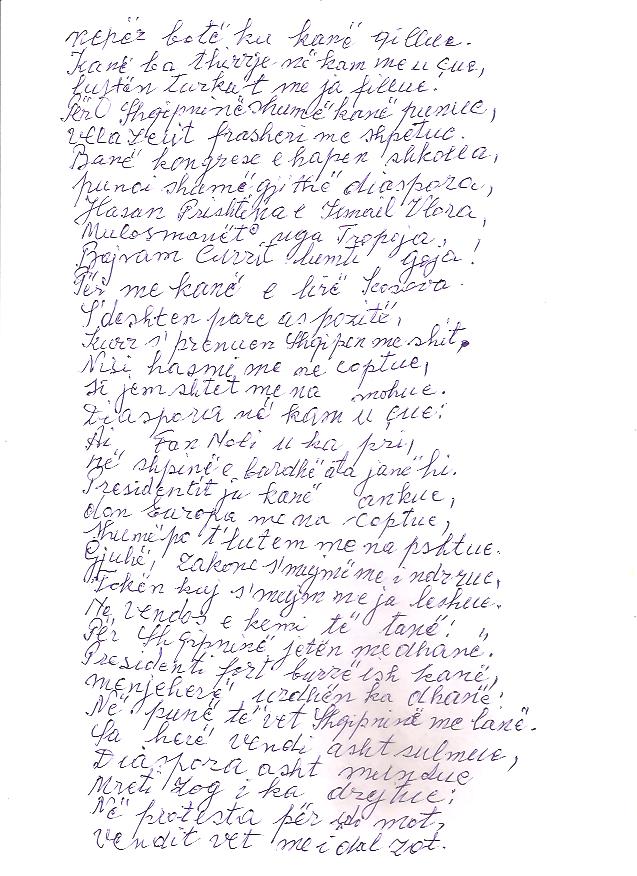 nepër botë ku kanë qillue.
Kanë ba thirrje në kam me u çue,
luftën turkut me ja fillue.
Për Shqipninë shumë kanë punue,
vllaznit frasheri me shpëtue.
Banë kongrese e hapen shkolla,
punoi shumë gjithë diaspora,
Hasan Prishtëna e Ismail Vlora,
Mulosmanët nga Tropoja,
Bajram Currit lumti goja!
Për me kanë e lirë Kosova.
S'deshten pare as pozitë,
Kurr s'prenuen Shqipen me shit,
Nisi hasmi me ne coptue,
si jem shtet me na mohue.
Diaspora në kam u çue:
Ai Fan Noli u ka pri,
në shpinë e bardhë ata janë hi.
Presidentit ju kanë ankue,
don Europa me na coptue,
shumë po t'lutem me na pshtue.
Gjuhë, zakone s'mujmë me i ndrrue,
Tokën kuj s'mujm me ja leshue.
Ne vendos e kemi të tanë!
Për Shqipninë jetën me dhanë."
Presidenti fort burrë ish kanë,
menjeherë urdhën ka dhanë:
Në punë të vet Shqipninë me lanë.
Sa herë vendi asht sulmue,
Diaspora asht mundue
Mreti Zog i ka drejtue:
Në protesta për mot,
vendit vet me i dal zot.